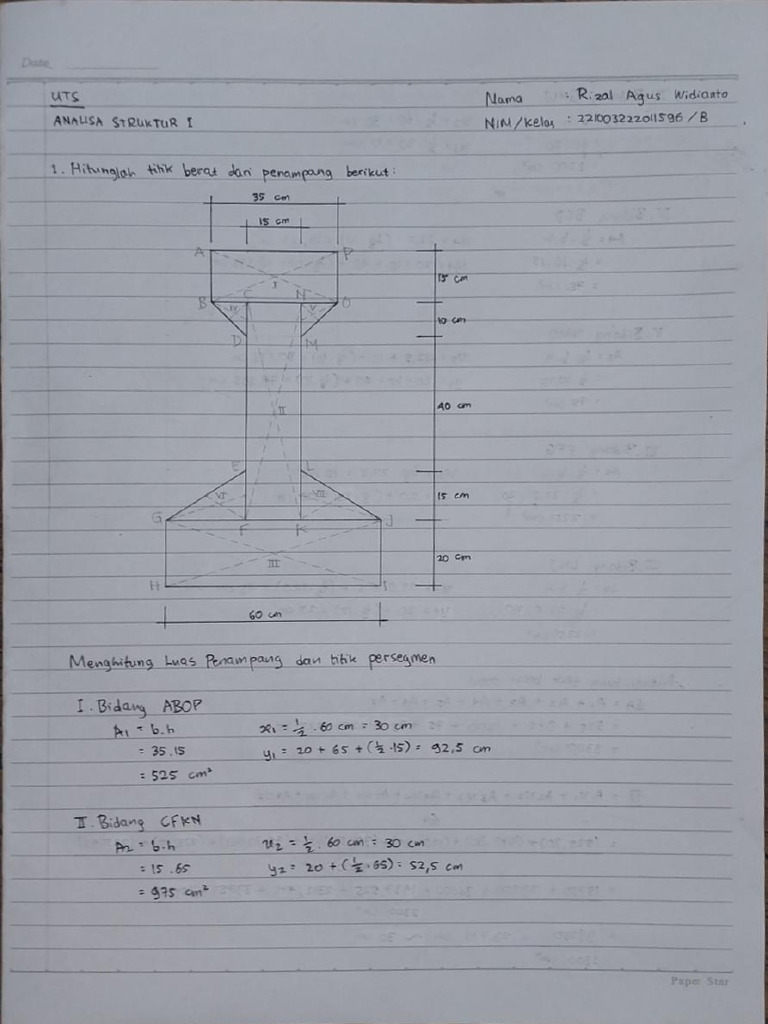 Date
UTS
Nama : Rizal Agus Widianto
ANALISA STRUKTUR I
NIM/Kelas : 221003222011596 / B
1. Hitunglah titik berat dari penampang berikut:
35 cm
15 cm
A P
15 cm
I
B C N O
IV V
10 cm
D M
II
40 cm
E L
VI VII
15 cm
G F K J
III
20 cm
H I
60 cm
Menghitung Luas Penampang dan titik persegmen
I. Bidang ABOP
A1 = b.h x1 = 1/2 . 60 cm = 30 cm
= 35.15 y1 = 20 + 65 + (1/2 . 15) = 92,5 cm
= 525 cm²
II. Bidang CFKN
A2 = b.h x2 = 1/2 . 60 cm = 30 cm
= 15 .65 y2 = 20 + (1/2 . 65) = 52,5 cm
= 975 cm²
Paper Star